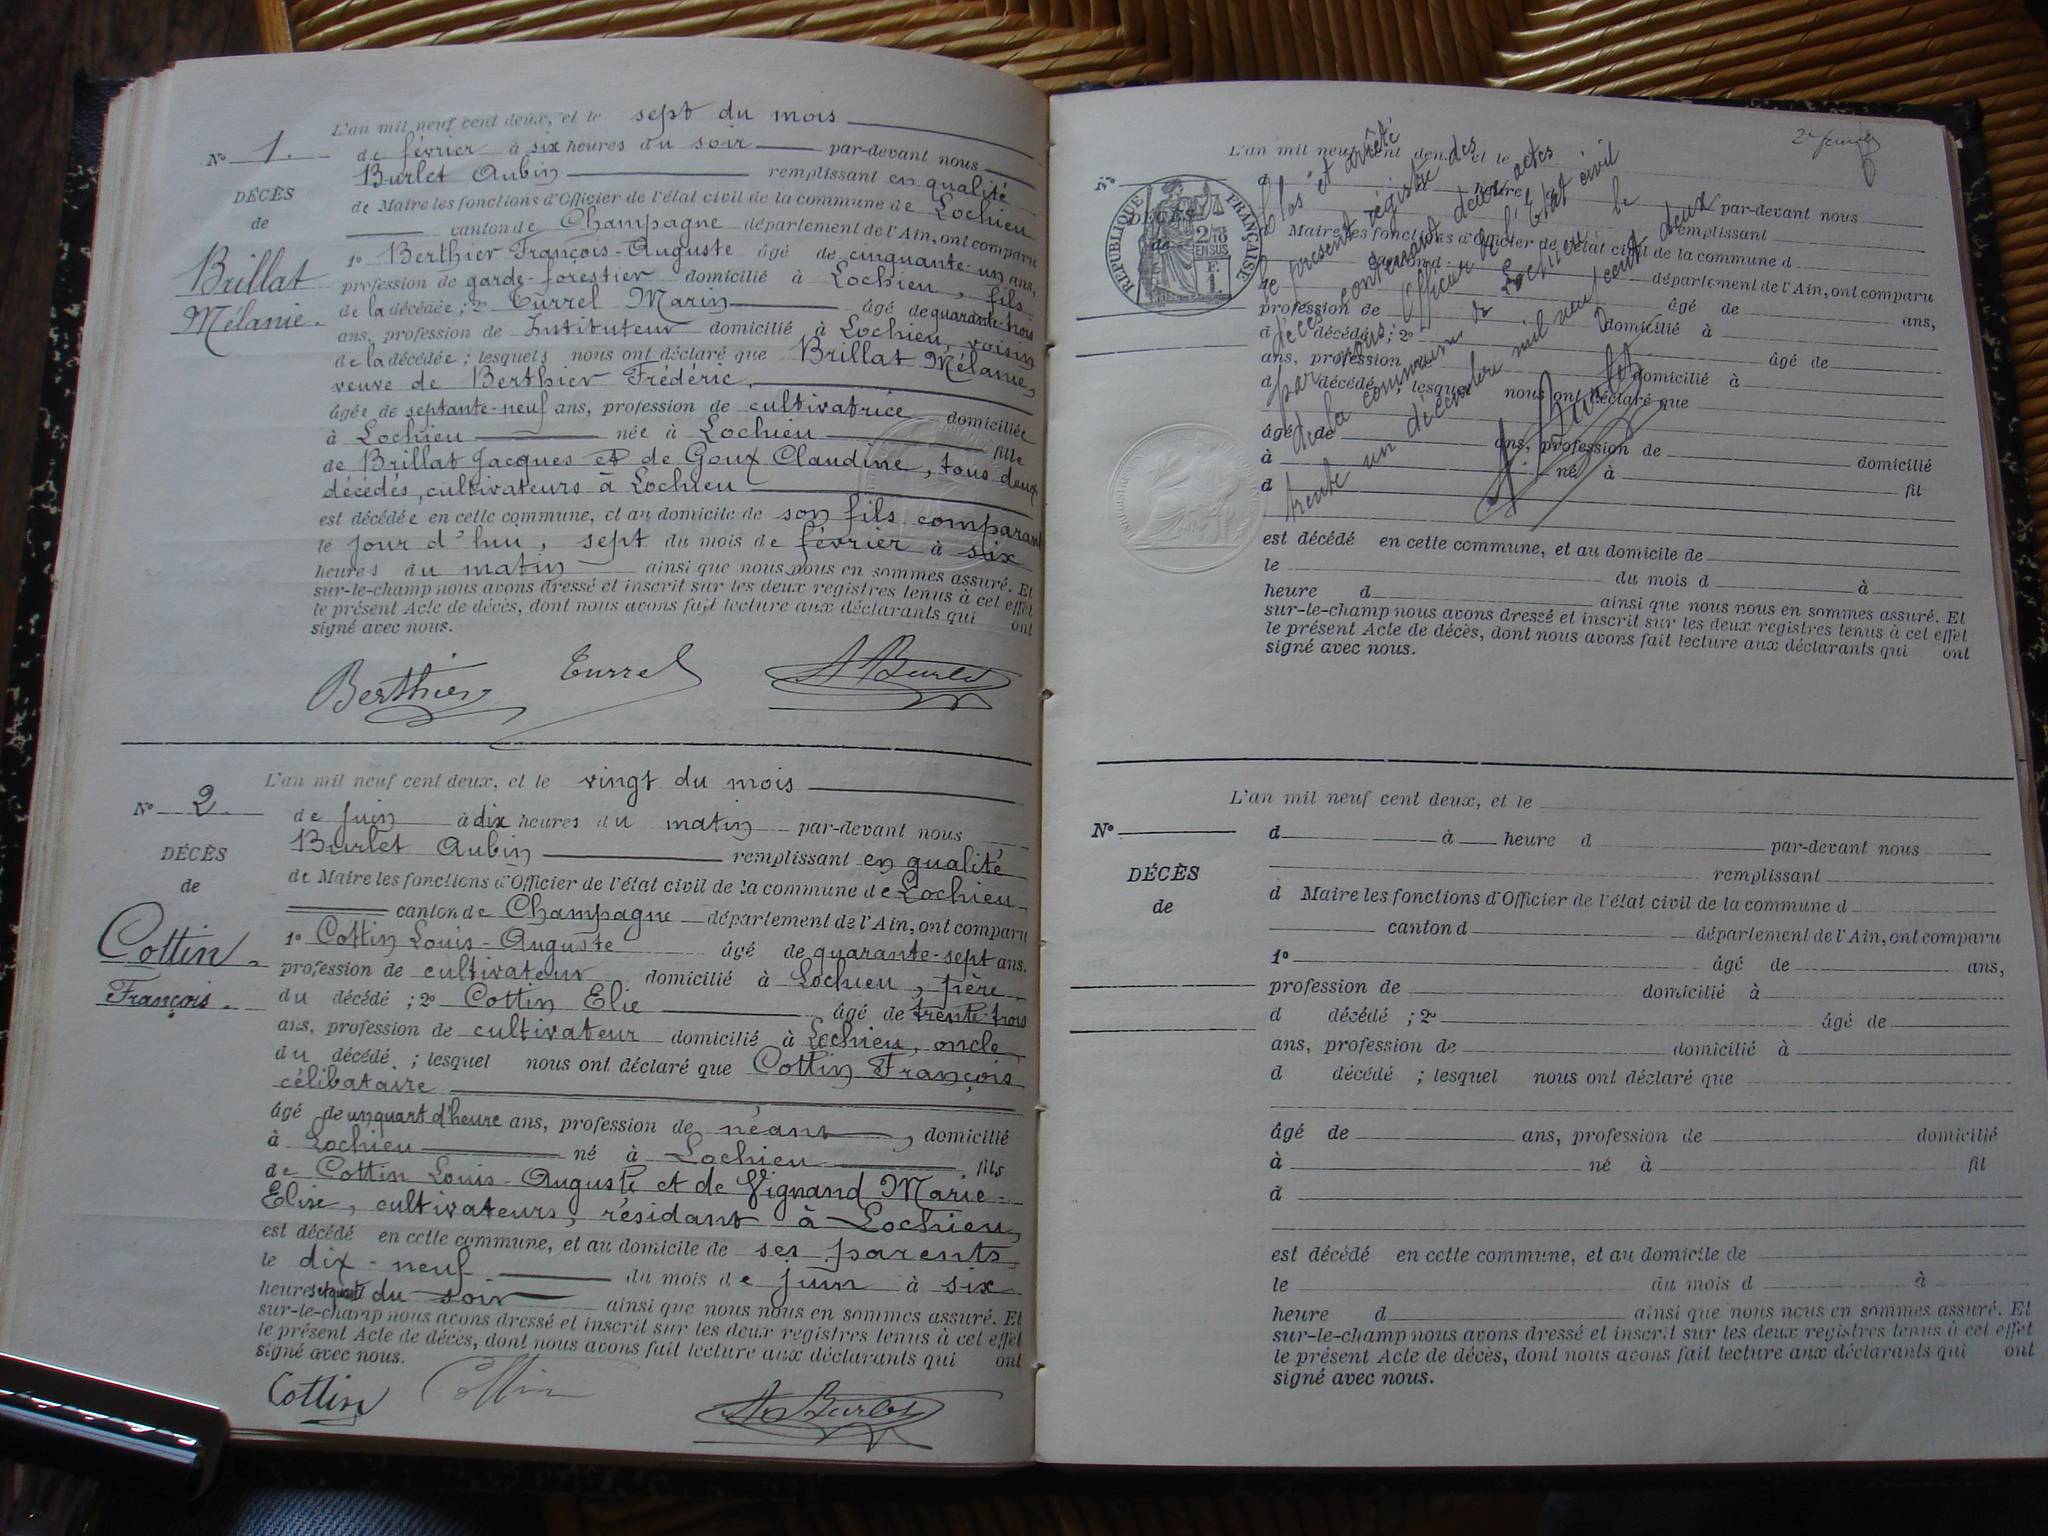 L'an mil neuf cent deux, et le sept du mois
N° 1. de février à six heures du soir par-devant nous
Burlet Aubin remplissant en qualité
DÉCÈS de Maire les fonctions d'Officier de l'état civil de la commune de Lochieu
de canton de Champagne département de l'Ain, ont comparu
1° Berthier François-Auguste âgé de cinquante-un ans,
Brillat profession de garde-forestier domicilié à Lochieu, fils
Mélanie. de la décédée; 2° Turrel Marin âgé de quarante-trois
ans, profession de Instituteur domicilié à Lochieu, voisin
de la décédée; lesquels nous ont déclaré que Brillat Mélanie,
veuve de Berthier Frédéric,
âgée de septante-neuf ans, profession de cultivatrice domiciliée
à Lochieu née à Lochieu fille
de Brillat Jacques et de Goux Claudine, tous deux
décédés, cultivateurs à Lochieu
est décédée en cette commune, et au domicile de son fils comparant
le jour d'hui, sept du mois de février à six
heures du matin ainsi que nous nous en sommes assuré. Et
sur-le-champ nous avons dressé et inscrit sur les deux registres tenus à cet effet
le présent Acte de décès, dont nous avons fait lecture aux déclarants qui ont
signé avec nous.
Berthier Turrel A Burlet
L'an mil neuf cent deux, et le vingt du mois
N° 2. de juin à dix heures du matin par-devant nous
Burlet Aubin remplissant en qualité
DÉCÈS de Maire les fonctions d'Officier de l'état civil de la commune de Lochieu
de canton de Champagne département de l'Ain, ont comparu
Cottin 1° Cottin Louis-Auguste âgé de quarante-sept ans,
profession de cultivateur domicilié à Lochieu, père
François. du décédé; 2° Cottin Elie âgé de trente-trois
ans, profession de cultivateur domicilié à Lochieu, oncle
du décédé; lesquel nous ont déclaré que Cottin François
célibataire
âgé de un quart d'heure ans, profession de néant, domicilié
à Lochieu né à Lochieu, fils
de Cottin Louis-Auguste et de Vignand Marie-
Elise, cultivateurs, résidant à Lochieu,
est décédé en cette commune, et au domicile de ses parents
le dix-neuf du mois de juin à six
heures du soir ainsi que nous nous en sommes assuré. Et
sur-le-champ nous avons dressé et inscrit sur les deux registres tenus à cet effet
le présent Acte de décès, dont nous avons fait lecture aux déclarants qui ont
signé avec nous.
Cottin Cottin A Burlet
2e
L'an mil neuf cent deux, et le
N° d heure par-devant nous
remplissant
DÉCÈS Maire les fonctions d'Officier de l'état civil de la commune d
de canton d département de l'Ain, ont comparu
âgé de ans,
profession de domicilié à
d décédé; 2° âgé de
ans, profession domicilié à
d décédé; lesquel nous ont déclaré que
âgé de ans, profession de domicilié
à né à fil
d
est décédé en cette commune, et au domicile de
le du mois d à
heure d ainsi que nous nous en sommes assuré. Et
sur-le-champ nous avons dressé et inscrit sur les deux registres tenus à cet effet
le présent Acte de décès, dont nous avons fait lecture aux déclarants qui ont
signé avec nous.
RÉPUBLIQUE FRANÇAISE
2/10 EN SUS
F. 1.
Clos et arrêté
le présent registre des
décès contenant deux actes
par nous Officier de l'État civil
de la commune de Lochieu le
trente un décembre mil neuf cent deux
A. Burlet
L'an mil neuf cent deux, et le
N° d à heure d par-devant nous
remplissant
DÉCÈS d Maire les fonctions d'Officier de l'état civil de la commune d
de canton d département de l'Ain, ont comparu
1° âgé de ans,
profession de domicilié à
d décédé; 2° âgé de
ans, profession de domicilié à
d décédé; lesquel nous ont déclaré que
âgé de ans, profession de domicilié
à né à fil
d
est décédé en cette commune, et au domicile de
le du mois d à
heure d ainsi que nous nous en sommes assuré. Et
sur-le-champ nous avons dressé et inscrit sur les deux registres tenus à cet effet
le présent Acte de décès, dont nous avons fait lecture aux déclarants qui ont
signé avec nous.